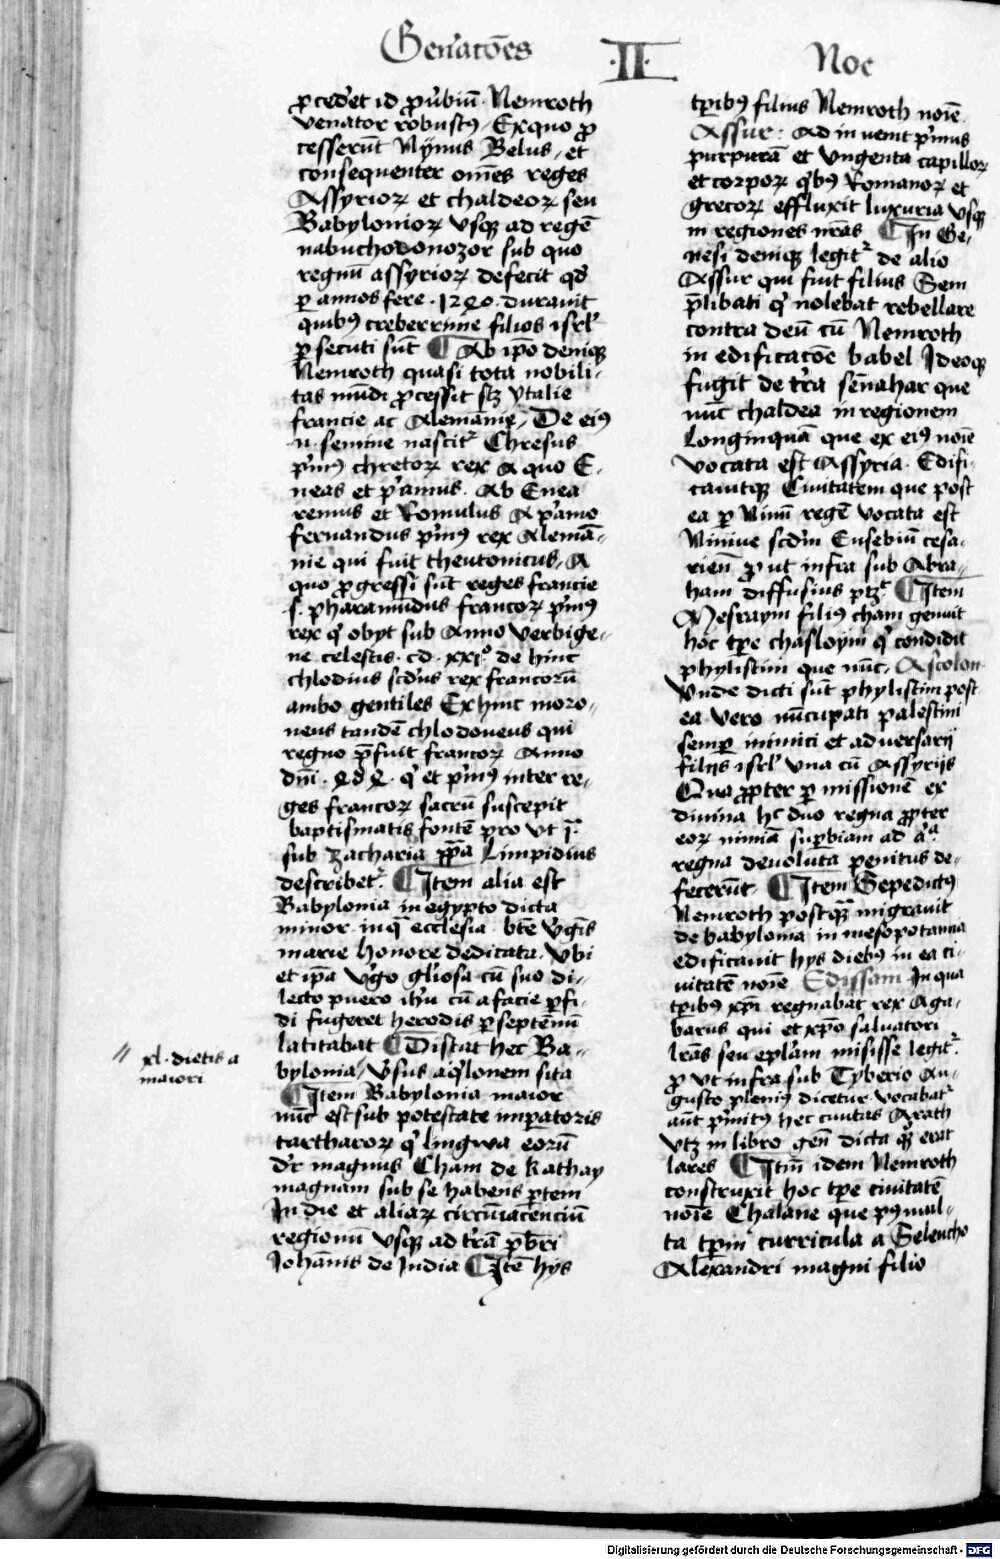 Gen'acōes .II. Noe
ꝓcedet id ꝓu'biū. Nemroth
venator robustꝰ, Ex quo ꝓ
cesserūt Nÿnus Belus, et
consequenter om̄es reges
Assyrioꝝ et chaldeoꝝ seu
Babylonioꝝ vsqꝫ ad regē
nabuchodonozor sub quo
regnū assyrioꝝ defecit qd'
ꝑ annos fere .1240. durauit
quibꝰ creberrime filios isrl'
ꝑsecuti sūt ¶ Ab ip̄o deniqꝫ
Nemroth quasi tota nobili-
tas mūdi ꝓcessit sꝫ ytalie
francie ac Alemānie, De eiꝰ
.n. semine nascit' Chresus
p'mꝰ chretoꝝ rex a quo E-
neas et p'amus. Ab Enea
remus et Romulus A p'amo
fernandus p'mꝰ rex Alemā-
nie qui fuit theutonicus, A
quo ꝓgressi sūt reges francie
.s. pharamūdus francoꝝ p'mꝰ
rex q' obyt sub Anno verbige-
ne celestis .cd. xxj.º de hinc
chlodius scd'us rex francorū
ambo gentiles Ex hinc moro-
neus tandē chlodoueus qui
regno p̄fuit francoꝝ Anno
dn̄i .484. q' et p'mꝰ inter re-
ges francoꝝ sacrū suscepit
baptismatis fontē pro vt j.ª
sub zacharia pp̄a Limpidius
describet'. ¶ Item alia est
Babylonia in egypto dicta
minor. in q̄ ecclesia bt̄e v'gīs
marie honore dedicata. vbi
et ip̄a v'go gl̄iosa cū suo di-
lecto puero ih'u cū a facie ꝑfi-
di fugeret herodis ꝑ septēniū
latitabat ¶ Distat hec Ba-
bylonia, v'sus aq'lonem sita
// xl. dietis a
maiori
¶ Item Babylonia maior
nūc est sub potestate impatoris
tarthaꝛoꝝ q' lingwa eorū
d'r magnus Cham de kathay
magnam sub se habens ꝑtem
Indie et aliaꝝ circūiacenciū
regionū vsqꝫ ad t'rā p'br̄i
Johānis de India ¶ Itē hys
tp̄ibꝰ filius Nemroth noīe
Assur: Ad inuenit p'mus
purpurā et vngenta capilloꝝ
et corpoꝝ q'bꝰ Romanoꝝ et
grecoꝝ effluxit luxuria vsqꝫ
in regiones nr̄as ¶ In Ge-
nesi deniqꝫ legit' de alio
Assur qui fuit filius Sem
p̄libati q' nolebat rebellare
contra deū cū Nemroth
in edificacōe babel Ideoqꝫ
fugit de t'ra sēnahar que
nūc chaldea in regionem
longinquā que ex eiꝰ noīe
vocata est Assyria. Edifi-
cauitqꝫ Ciuitatem que post
ea ꝑ Ninū regē vocata est
Niniue scd'm Eusebiū cesa-
rien̄ ꝓ ut infra sub Abra-
ham diffusius ptꝫ ¶ Item
Mesraym filiꝰ cham genuit
hoc tp̄e chasloym q' condidit
phylistim que nūc, Ascolon
vnde dicti sūt phylistim post
ea vero nūcupati palestini
semꝑ inimici et aduersarij
filijs isrl' vna cū Assyrijs
Qua ꝓpter ꝑmissionē ex
diuina hc̄ duo regna ꝓpter
eoꝝ nimiā sup̱biam ad a'ª
regna deuoluta penitus de-
fecerūt ¶ Item Sepedictꝰ
Nemroth postq̄ꝫ migrauit
de babylonia in mesopotamia
edificauit hys diebꝰ in ea ci-
uitatē noīe Edissam In qua
tp̄ibꝰ xp̄i regnabat rex Aga-
barus qui et xp̄o saluatori
lr̄as seu epl'am misisse legit'.
ꝓ vt infra sub Tyberio Au-
gusto pleniꝰ dicetur. vocabat'
aūt p'mitꝰ hec ciuitas Arath
vtꝫ in libro gen̄ dicta q'ꝫ erat
lares ¶ Itm̄ idem Nemroth
construxit hoc tp̄e ciuitatē
noīe Chalane que pꝰ mul-
ta tp̄m curricula a Seleucho
Alexandri magni filio
Digitalisierung gefördert durch die Deutsche Forschungsgemeinschaft - DFG